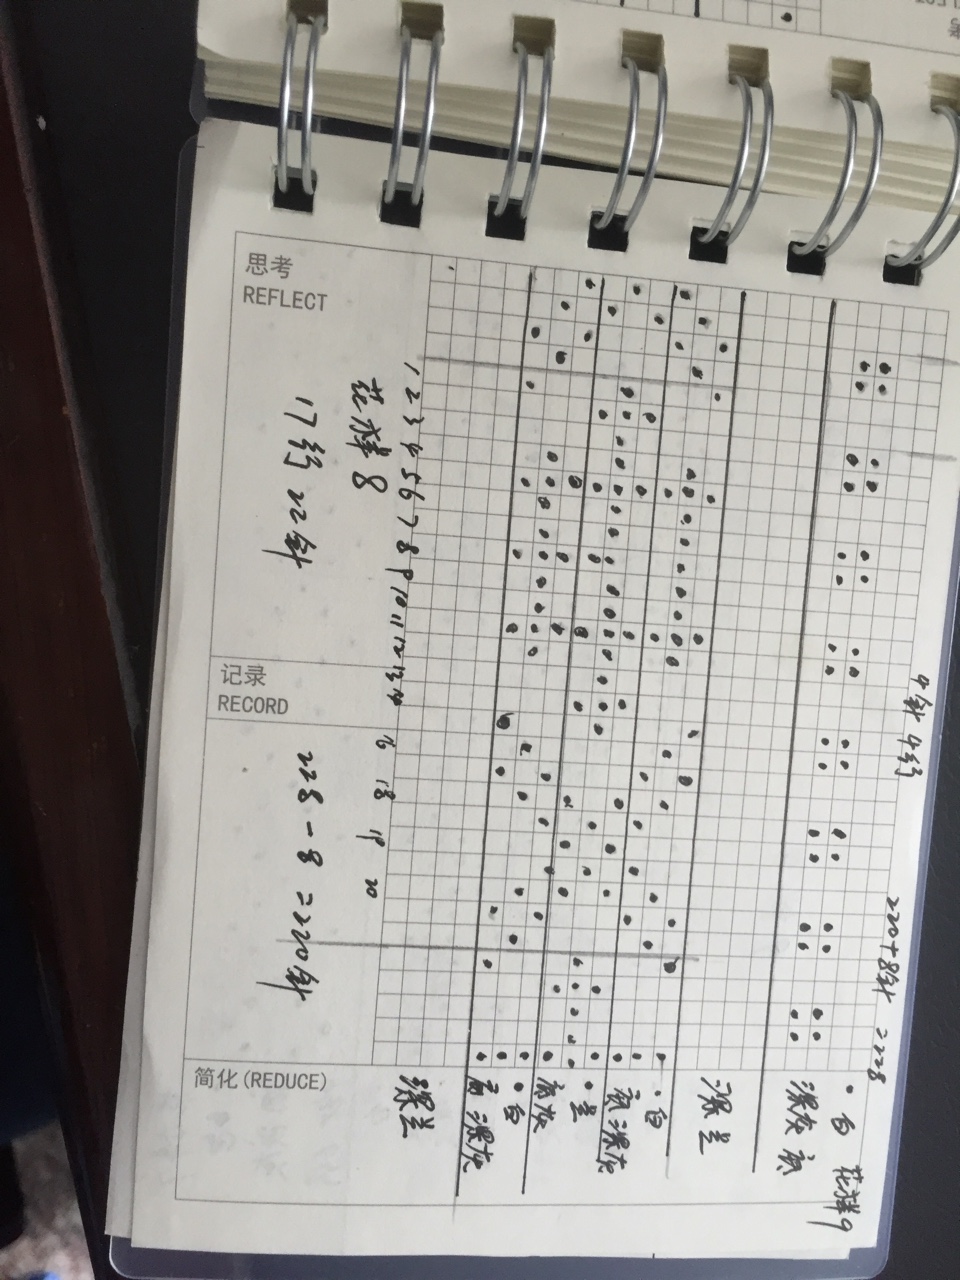 思考
REFLECT
记录
RECORD
简化(REDUCE)
花样8
17行 22针
228-8=220针
1 2 3 4 5 6 7 8 9 10 11 12 13 14
16 18 19 20
深兰
·白
底深灰
·兰
底灰
·白
底深灰
深兰
·白
深灰底
花样9
4针4行
220+8针=228